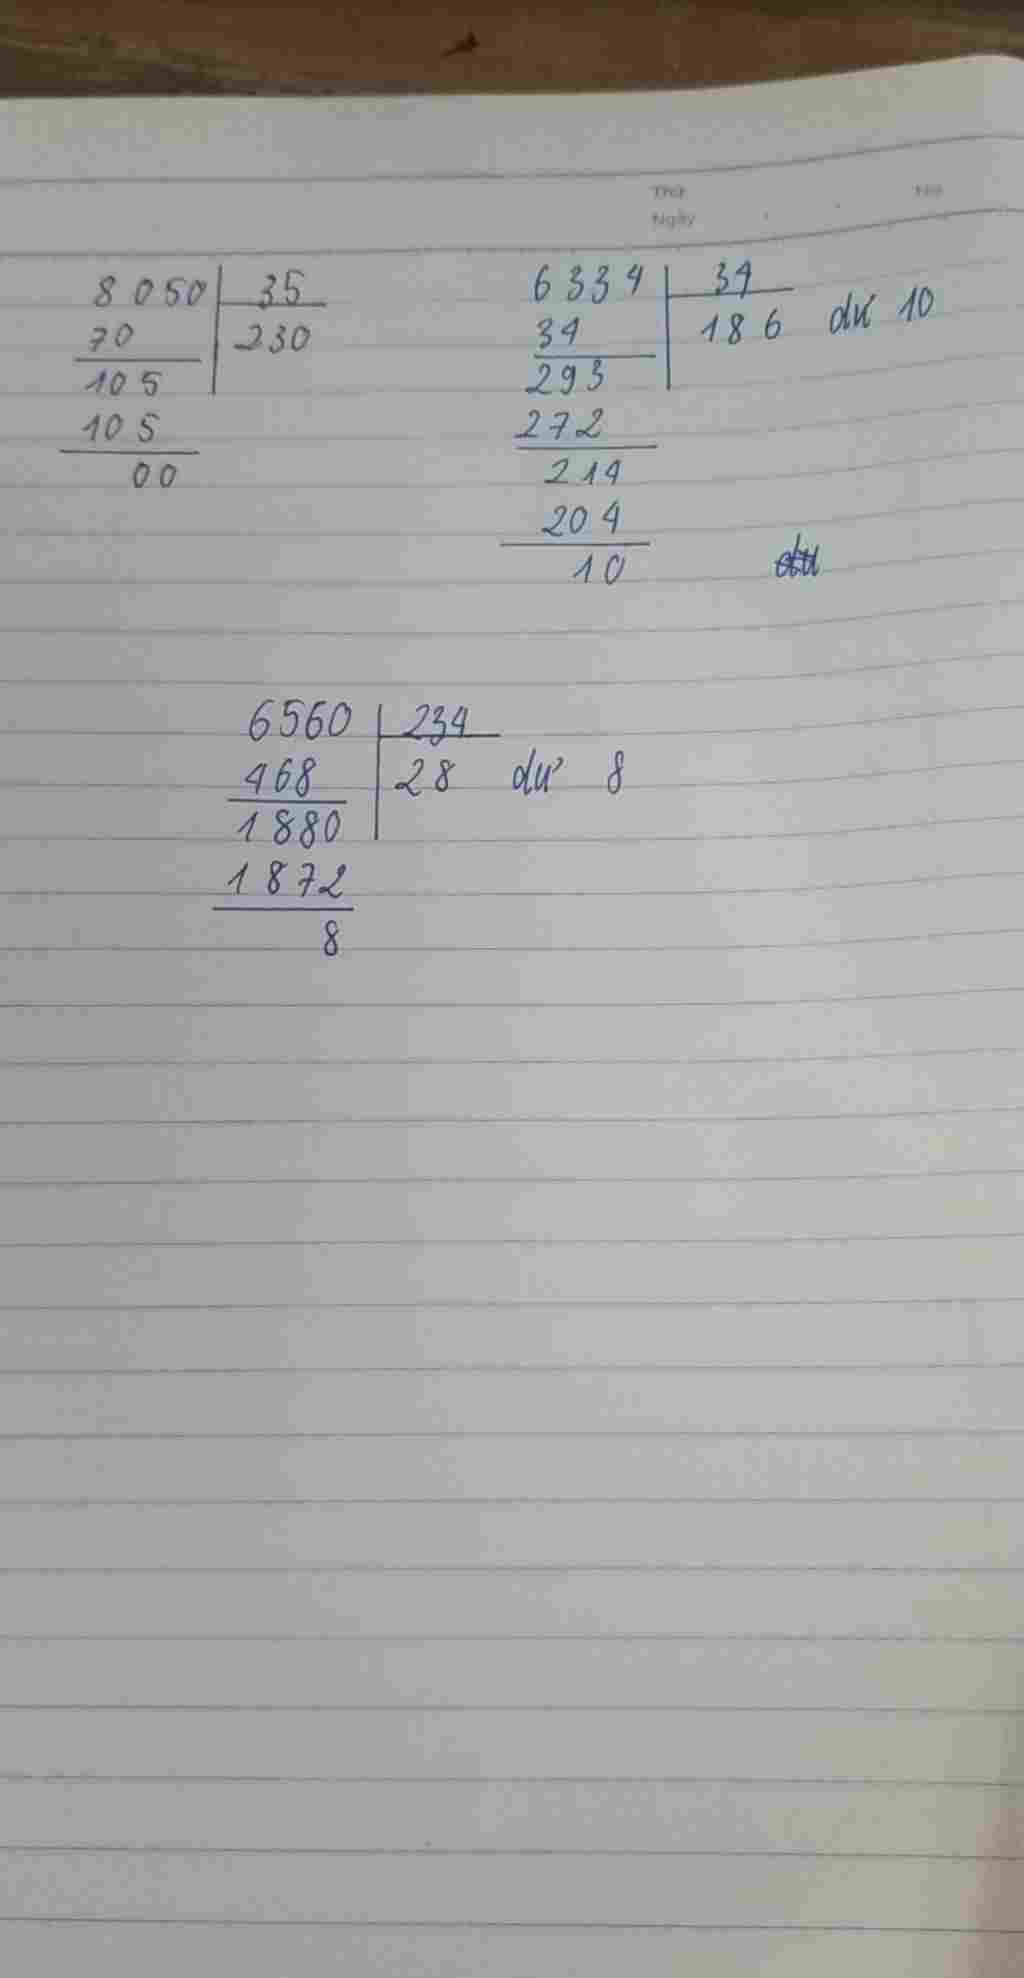 Thứ
Ngày
No
8050 35
70 230
105
105
00
6334 34
34 186 dư 10
293
272
214
204
10
6560 234
468 28 dư 8
1880
1872
8